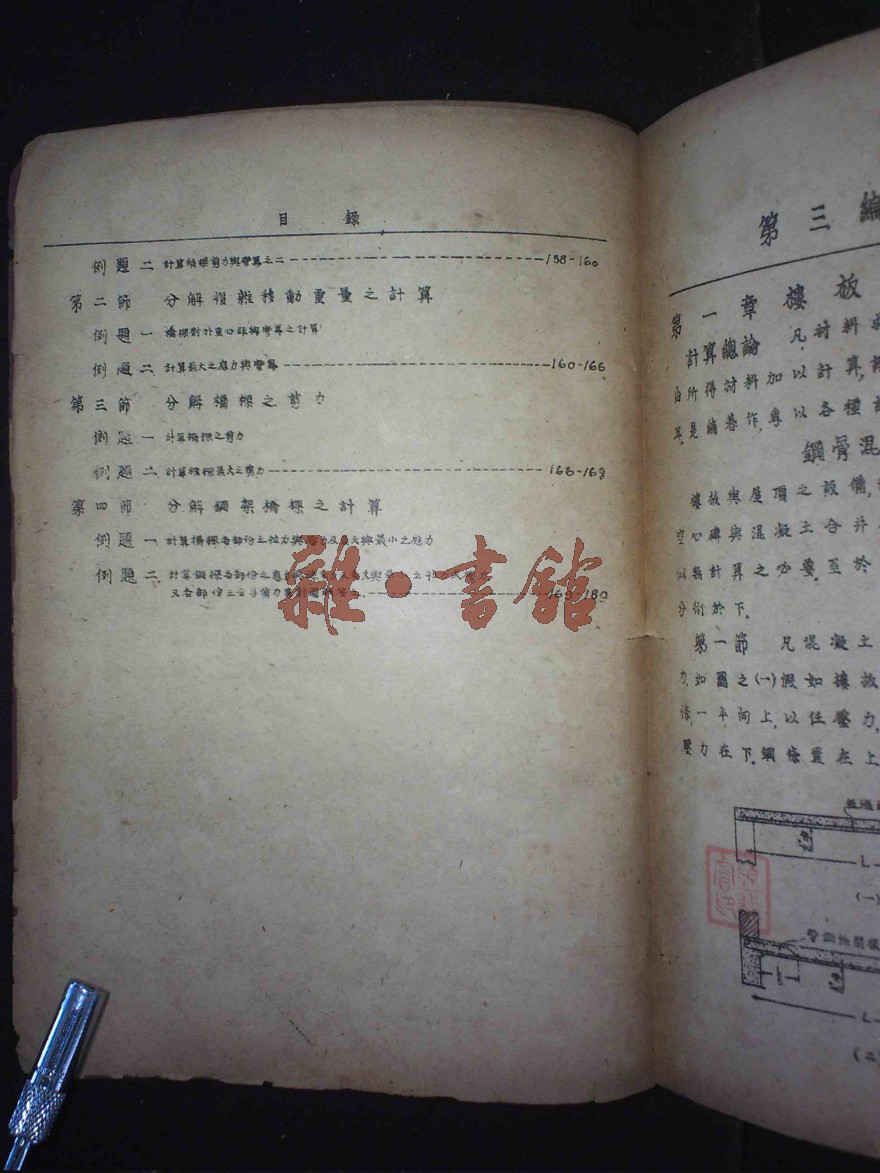 目 錄
例題二 計算橋樑剪力與彎冪之二 158-160
第二節 分解複雜移動重量之計算
例題一 橋樑對於重心距與彎冪之計算
例題二 計算最大之應力與彎冪 160-166
第三節 分解橋樑之剪力
例題一 計算橋樑之剪力
例題二 計算橋樑最大之剪力 166-169
第四節 分解鋼架橋樑之計算
例題一 計算橋樑各部份之拉力與應力及最大與最小之應力
例題二 計算鋼樑各部份之應力
又各部份之 169-180
雜·書館
第三編
第一章 樓板
計算總論 凡材料
由所得材料加以計算
是編卷作,專以各種
鋼骨混
樓放與屋頂之設備
空心磚與混凝土合并
以無計算之必要.至於
分術於下.
第一節 凡混凝土
力.如圖之(一)假如樓放
條,一平向上,以任壓力,
壓力在下.鋼條置在上
L
(一)
L
(二